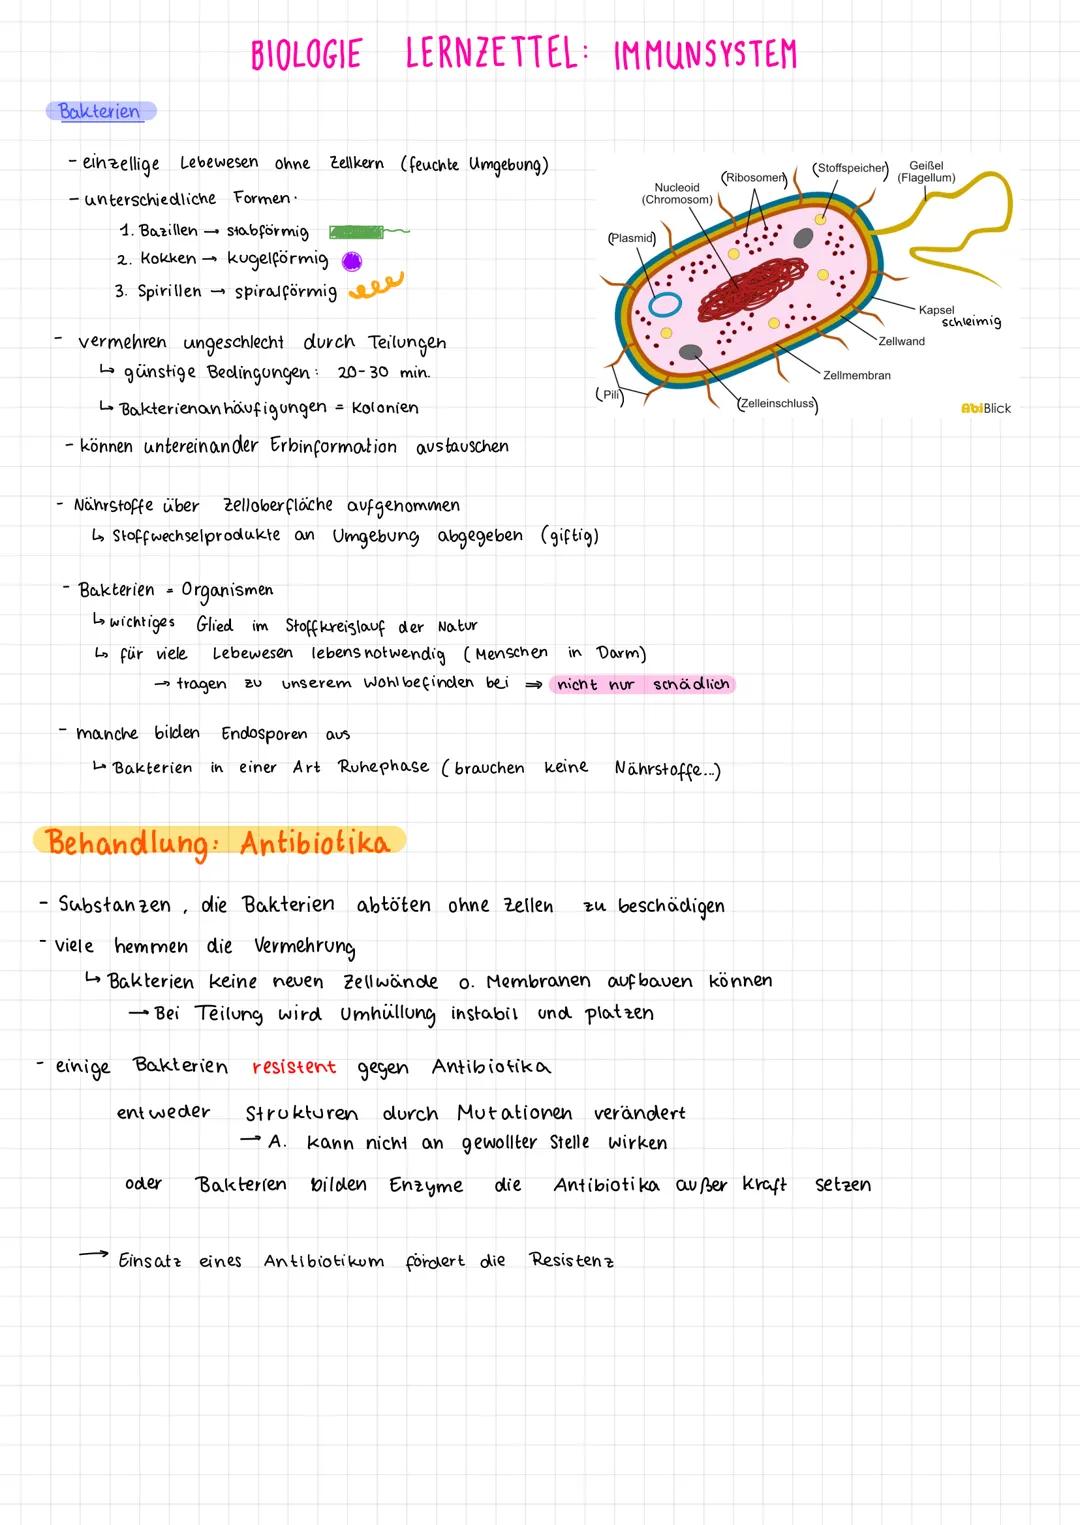 BIOLOGIE LERNZETTEL: IMMUNSYSTEM
Bakterien
- einzellige Lebewesen ohne Zellkern (feuchte Umgebung)
- unterschiedliche Formen:
1. Bazillen → stabförmig
2. Kokken → kugelförmig
3. Spirillen → spiralförmig
- vermehren ungeschlecht durch Teilungen
↳ günstige Bedingungen: 20-30 min.
↳ Bakterienanhäufigungen = Kolonien
- können untereinander Erbinformation austauschen
(Plasmid)
Nucleoid
(Chromosom)
(Ribosomen)
(Stoffspeicher)
Geißel
(Flagellum)
Kapsel
schleimig
Zellwand
Zellmembran
(Zelleinschluss)
(Pili)
AbiBlick
- Nährstoffe über Zelloberfläche aufgenommen
↳ Stoffwechselprodukte an Umgebung abgegeben (giftig)
- Bakterien = Organismen
↳ wichtiges Glied im Stoffkreislauf der Natur
↳ für viele Lebewesen lebensnotwendig (Menschen in Darm)
→ tragen zu unserem Wohlbefinden bei ⇒ nicht nur schädlich
- manche bilden Endosporen aus
↳ Bakterien in einer Art Ruhephase (brauchen keine Nährstoffe...)
Behandlung: Antibiotika
- Substanzen, die Bakterien abtöten ohne Zellen zu beschädigen
- viele hemmen die Vermehrung
↳ Bakterien keine neuen Zellwände o. Membranen aufbauen können
→ Bei Teilung wird Umhüllung instabil und platzen
- einige Bakterien resistent gegen Antibiotika
entweder Strukturen durch Mutationen verändert
→ A. kann nicht an gewollter Stelle wirken
oder Bakterien bilden Enzyme die Antibiotika außer Kraft setzen
→ Einsatz eines Antibiotikum fördert die Resistenz